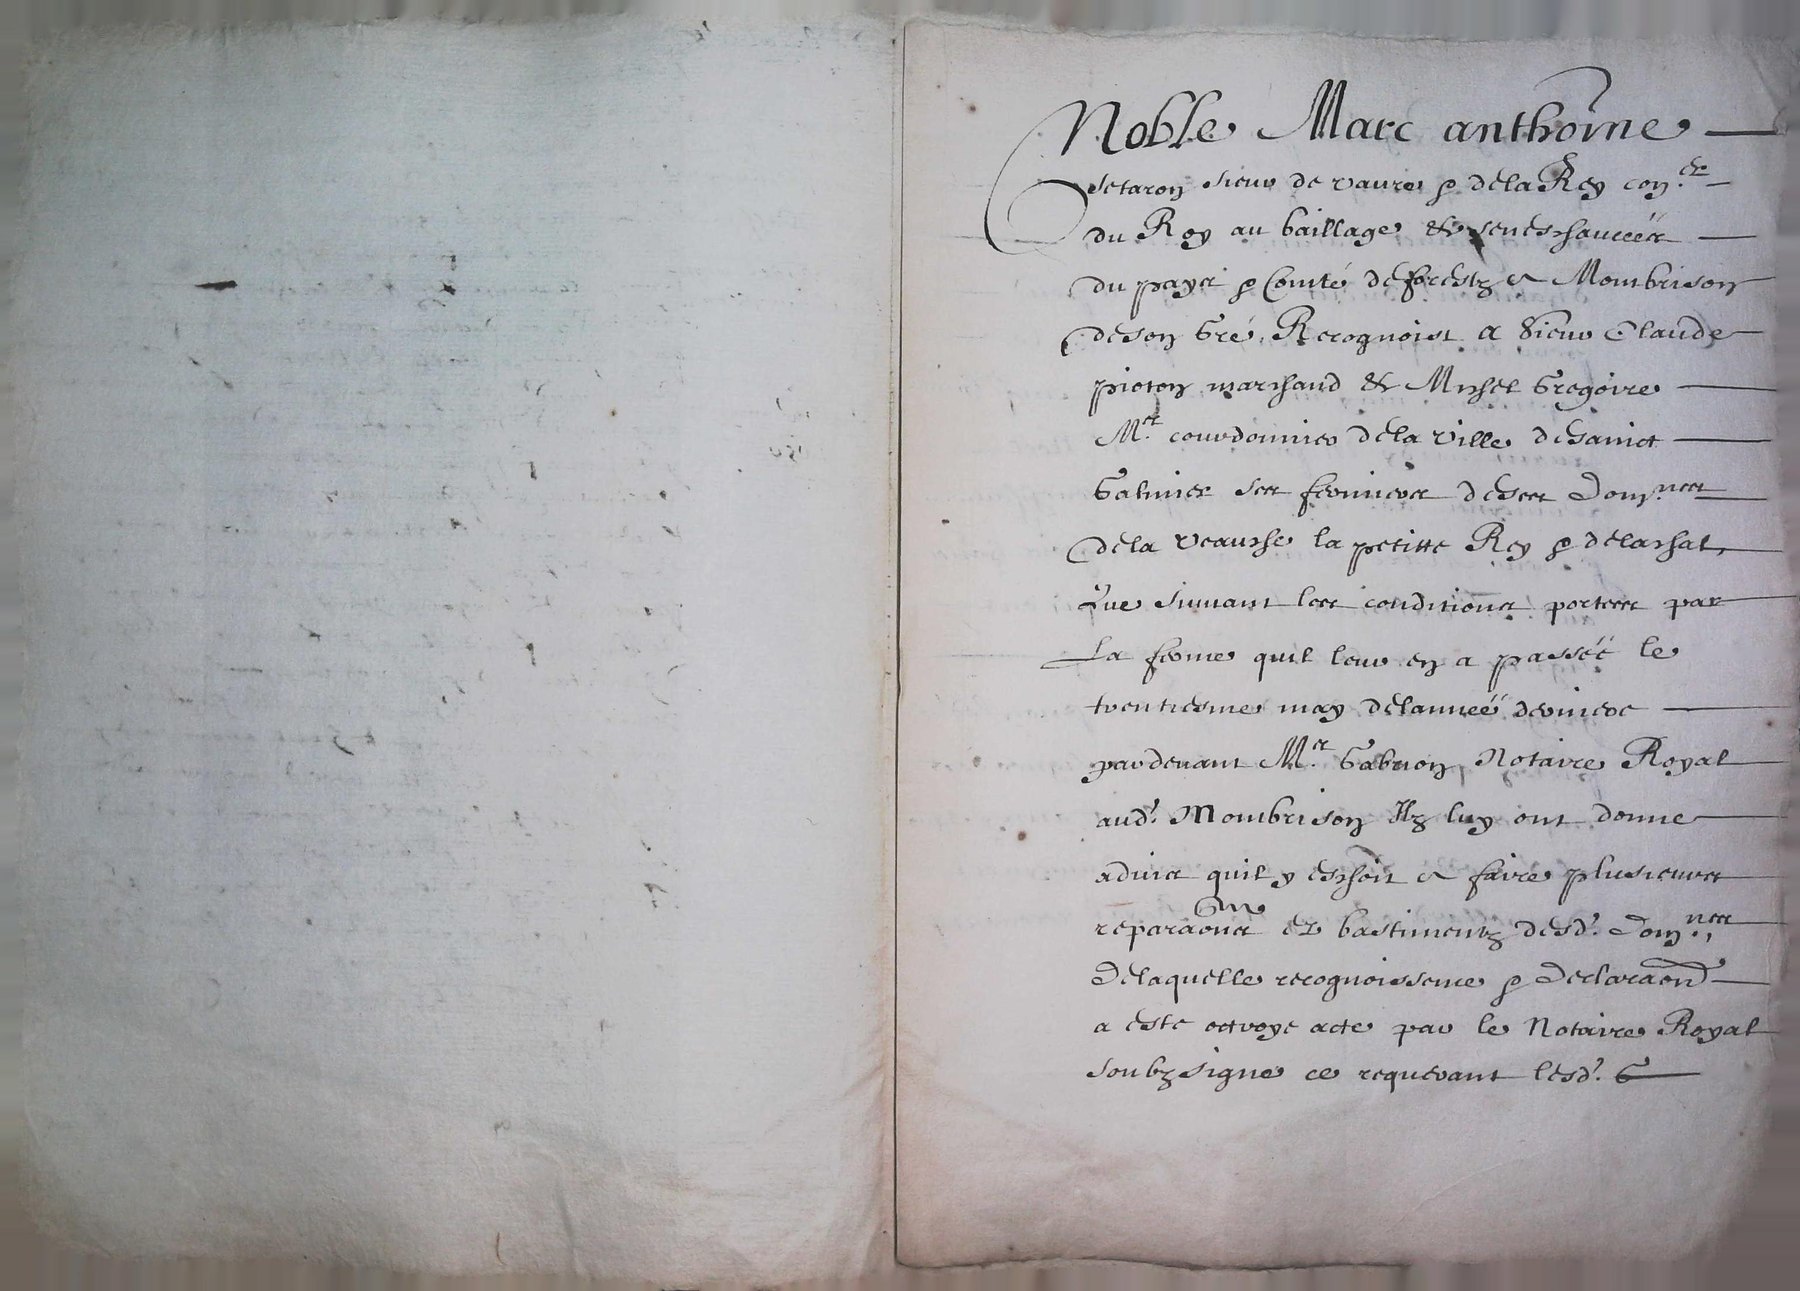 Noble Marc anthoine
Setaron sieur de vaure & de la Rey con.er
du Roy au baillage & seneschauceé
du pays & Comté de forestz a Mombrison
de son Gré, Recognoist a Sieur Claude
pioton marchand & Michel Gregoire
M.e courdonnier de la ville de sainct
Galmier ses fermiers de ses dom.nes
de la veausse la petitte Rey & de lachal,
Que suivant les conditions portees par
La ferme quil leur en a passeé le
trentiesme may de lanneé derniere
pardevant M.e Gabrion, Notaire Royal
aud. Mombrison Ilz luy ont donne
advis quil y eschoit a faire plusieurs
reparaons en bastimentz desd. Dom.nes,
De laquelle recognoissence & declaraon
a este octroye acte par le Notaire Royal
soubzsigne ce requerant lesd. G